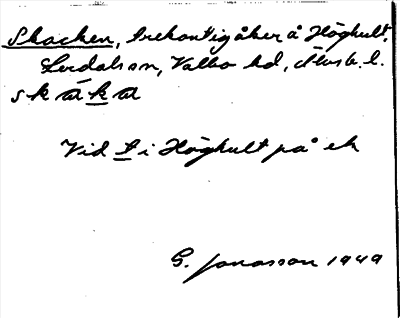 Skacken, trekantig åker å Höghult,
Lerdalssn, Valbo hd, Älvsb. l.
skáka
Vid t i Höghult på ek
G. Jonasson 1949